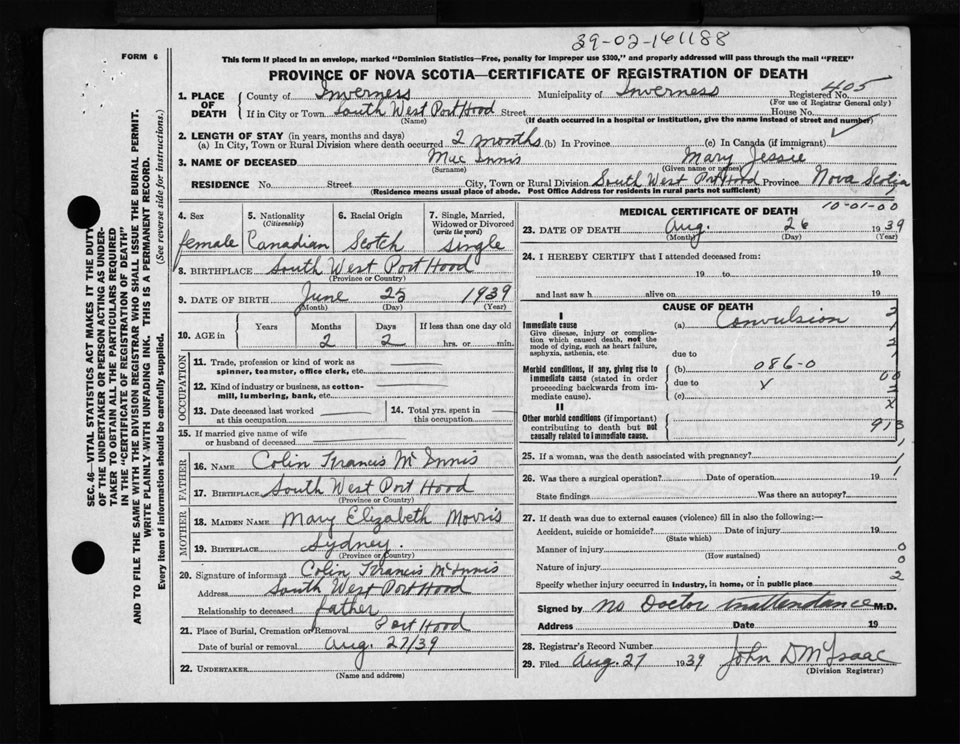 39-02-161188
FORM 6
This form if placed in an envelope, marked "Dominion Statistics—Free, penalty for improper use $300," and properly addressed will pass through the mail "FREE"
PROVINCE OF NOVA SCOTIA—CERTIFICATE OF REGISTRATION OF DEATH
1. PLACE OF DEATH County of Inverness Municipality of Inverness Registered No. 405
(For use of Registrar General only)
If in City or Town South West Port Hood Street House No.
(Name) (If death occurred in a hospital or institution, give the name instead of street and number)
2. LENGTH OF STAY (in years, months and days)
(a) In City, Town or Rural Division where death occurred 2 months (b) In Province (c) In Canada (if immigrant)
3. NAME OF DECEASED Mac Innis Mary Jessie
(Surname) (Given name or names)
RESIDENCE No. Street City, Town or Rural Division South West Port Hood Province Nova Scotia
(Residence means usual place of abode. Post Office Address for residents in rural parts not sufficient)
SEC. 46—VITAL STATISTICS ACT MAKES IT THE DUTY
OF THE UNDERTAKER OR PERSON ACTING AS UNDER-
TAKER TO OBTAIN ALL THE PARTICULARS REQUIRED
IN THE "CERTIFICATE OF REGISTRATION OF DEATH"
AND TO FILE THE SAME WITH THE DIVISION REGISTRAR WHO SHALL ISSUE THE BURIAL PERMIT.
WRITE PLAINLY WITH UNFADING INK. THIS IS A PERMANENT RECORD.
Every item of information should be carefully supplied. (See reverse side for instructions.)
4. Sex 5. Nationality (Citizenship) 6. Racial Origin 7. Single, Married, Widowed or Divorced (write the word)
female Canadian Scotch single
8. BIRTHPLACE South West Port Hood
(Province or Country)
9. DATE OF BIRTH June 25 1939
(Month) (Day) (Year)
10. AGE in Years Months Days If less than one day old
2 2 hrs. or min.
OCCUPATION
11. Trade, profession or kind of work as spinner, teamster, office clerk, etc.
12. Kind of industry or business, as cotton-mill, lumbering, bank, etc.
13. Date deceased last worked at this occupation 14. Total yrs. spent in this occupation
15. If married give name of wife or husband of deceased
FATHER
16. NAME Colin Francis McInnis
17. BIRTHPLACE South West Port Hood
(Province or Country)
MOTHER
18. MAIDEN NAME Mary Elizabeth Morris
19. BIRTHPLACE Sydney.
(Province or Country)
20. Signature of informant Colin Francis McInnis
Address South West Port Hood
Relationship to deceased father
21. Place of Burial, Cremation or Removal Port Hood
Date of burial or removal Aug. 27/39
22. UNDERTAKER
(Name and address)
10-01-00
MEDICAL CERTIFICATE OF DEATH
23. DATE OF DEATH Aug. 26 1939
(Month) (Day) (Year)
24. I HEREBY CERTIFY that I attended deceased from:
19 to 19
and last saw h alive on 19
CAUSE OF DEATH
I
Immediate cause (a) Convulsion
Give disease, injury or complication which caused death, not the mode of dying, such as heart failure, asphyxia, asthenia, etc.
due to
Morbid conditions, if any, giving rise to immediate cause (stated in order proceeding backwards from immediate cause). (b) 086-0
due to
(c)
II
Other morbid conditions (if important) contributing to death but not causally related to immediate cause.
913
25. If a woman, was the death associated with pregnancy?
26. Was there a surgical operation? Date of operation 19
State findings Was there an autopsy?
27. If death was due to external causes (violence) fill in also the following:—
Accident, suicide or homicide? Date of injury 19
(State which)
Manner of injury 0
(How sustained)
Nature of injury 0
2
Specify whether injury occurred in industry, in home, or in public place
Signed by No Doctor in attendance M.D.
Address Date 19
28. Registrar's Record Number
29. Filed Aug. 27 1939 John D McIsaac
(Division Registrar)